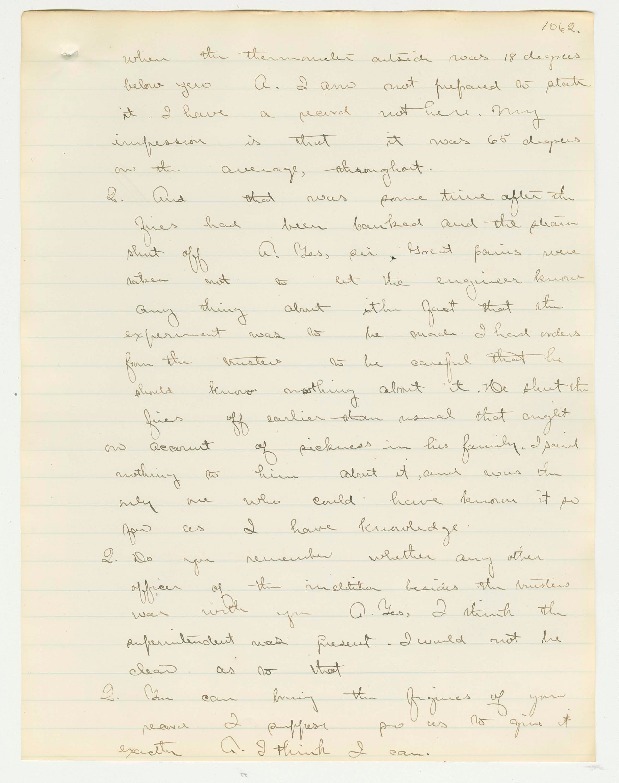 1062.
when the thermometer outside was 18 degrees
below zero A. I am not prepared to state
it I have a record not here. My
impression is that it was 65 degrees
on the average, throughout.
Q. And that was some time after the
fires had been banked and the steam
shut off A. Yes, sir, Great pains were
taken not to let the engineer know
any thing about the fact that the
experiment was to be made I had orders
from the trustees to be careful that he
should know nothing about it. He shut the
fires off earlier than usual that night
on account of sickness in his family. I said
nothing to him about it, and was the
only one who could have known it so
far as I have knowledge.
Q. Do you remember whether any other
officer of the institution besides the trustees
was with you A. Yes, I think the
superintendent was present. I would not be
clear as to that
Q. You can bring the figures of your
record I suppose so as to give it
exactly A. I think I can.